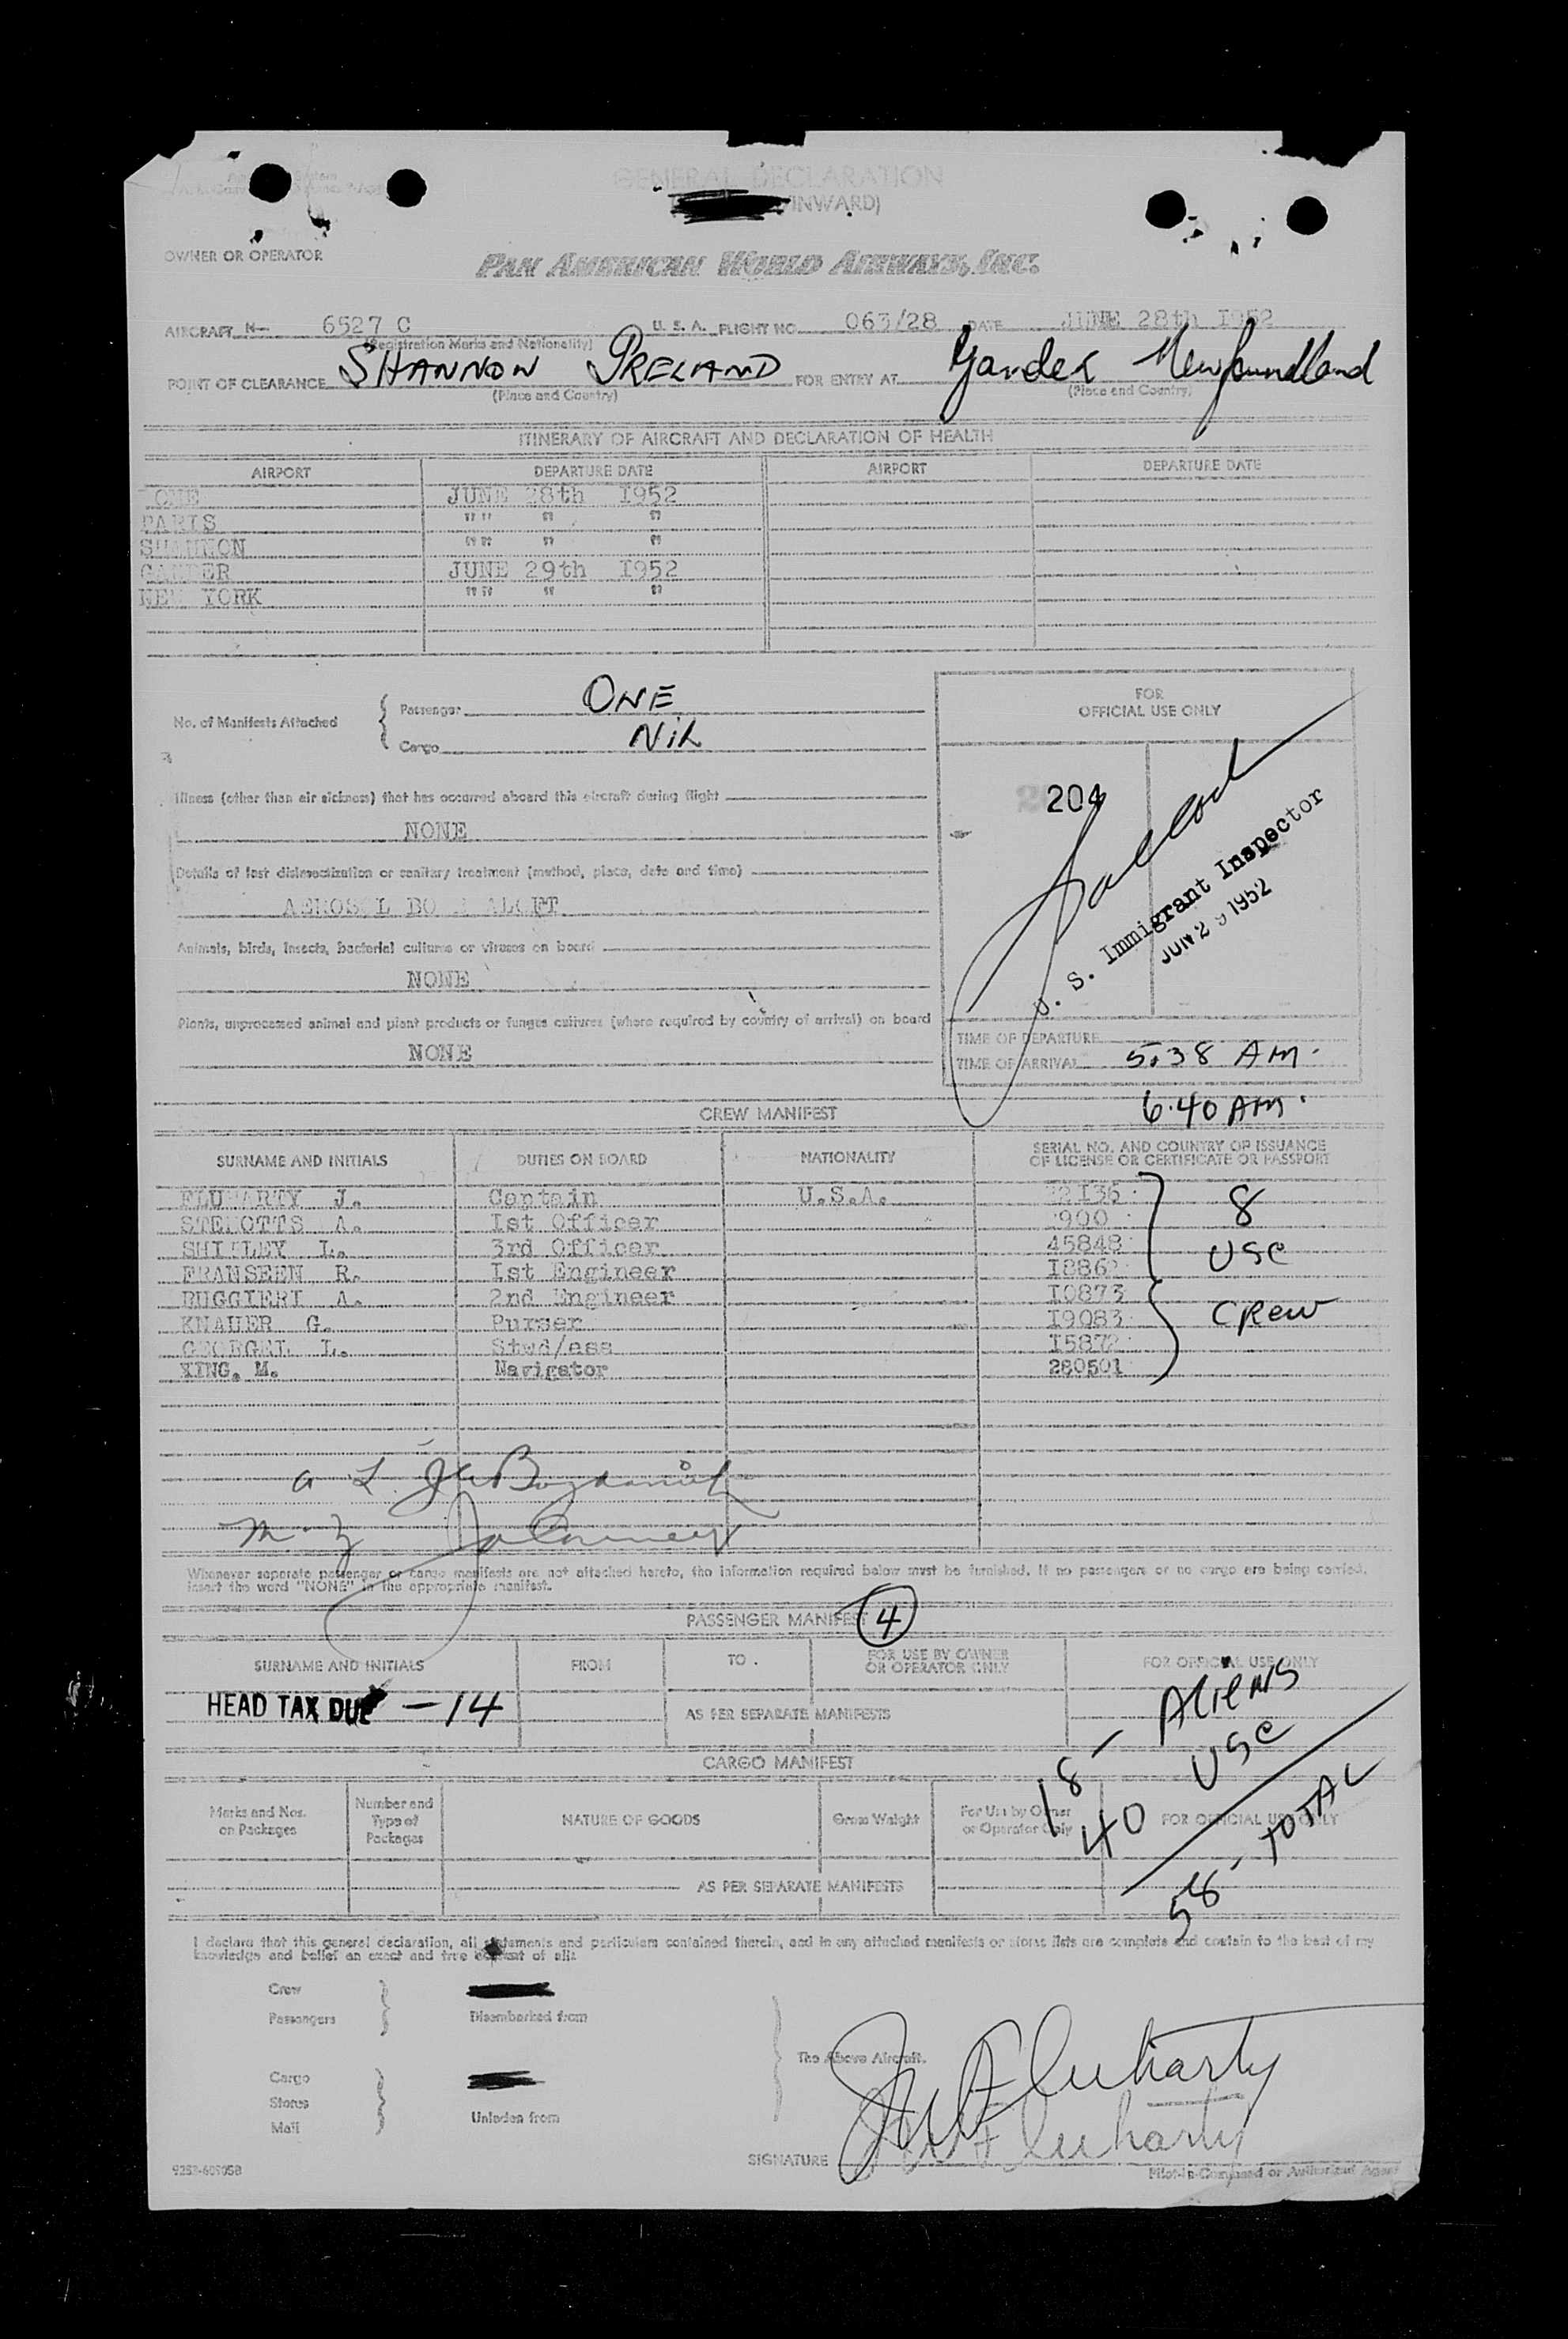 GENERAL DECLARATION
INWARD)
OWNER OR OPERATOR
PAN AMERICAN WORLD AIRWAYS, INC.
AIRCRAFT N— 6527 C U. S. A. FLIGHT NO. 063/28 DATE JUNE 28th I952
(Registration Marks and Nationality)
POINT OF CLEARANCE SHANNON IRELAND FOR ENTRY AT Gander Newfoundland
(Place and Country) (Place and Country)
ITINERARY OF AIRCRAFT AND DECLARATION OF HEALTH
AIRPORT DEPARTURE DATE AIRPORT DEPARTURE DATE
OME JUNE 28th I952
PARIS "" " "
SHANNON "" " "
GANDER JUNE 29th I952
NEW YORK "" " "
No. of Manifests Attached
Passenger ONE
Cargo NIL
FOR
OFFICIAL USE ONLY
204
U. S. Immigrant Inspector
JUN 29 1952
Illness (other than air sickness) that has occurred aboard this aircraft during flight
NONE
Details of last disinsectization or sanitary treatment (method, place, date and time)
AEROSOL BO ALOFT
Animals, birds, insects, bacterial cultures or viruses on board
NONE
Plants, unprocessed animal and plant products or fungus cultures (where required by country of arrival) on board
NONE
TIME OF DEPARTURE
TIME OF ARRIVAL 5:38 AM.
6.40 AM.
CREW MANIFEST
SURNAME AND INITIALS DUTIES ON BOARD NATIONALITY SERIAL NO. AND COUNTRY OF ISSUANCE
OF LICENSE OR CERTIFICATE OR PASSPORT
FLUHARTY J. Captain U.S.A. I36
STELOTTS A. Ist Officer 900
SHIRLEY L. 3rd Officer 45848
FRANSEEN R. Ist Engineer I886
RUGGIERI A. 2nd Engineer I0873
KNAUER G. Purser I9083
GEORGEL L. Stwd/ess I587
KING, M. Navigator 280501
8
USC
CREW
Whenever separate passenger or cargo manifests are not attached hereto, the information required below must be furnished. If no passengers or no cargo are being carried,
insert the word "NONE" in the appropriate manifest.
PASSENGER MANIFEST 4
SURNAME AND INITIALS FROM TO . FOR USE BY OWNER
OR OPERATOR ONLY FOR OFFICIAL USE ONLY
HEAD TAX DUE — 14
AS PER SEPARATE MANIFESTS
18 - ALIENS
40 USC
58 - TOTAL
CARGO MANIFEST
Marks and Nos.
on Packages
Number and
Type of
Packages
NATURE OF GOODS
Gross Weight
For Use by Owner
or Operator Only
FOR OFFICIAL USE ONLY
AS PER SEPARATE MANIFESTS
I declare that this general declaration, all statements and particulars contained therein, and in any attached manifests or stores lists are complete and contain to the best of my
knowledge and belief an exact and true account of all:
Crew
Passengers
Disembarked from
Cargo
Stores
Mail
Unladen from
The Above Aircraft.
J W Fluharty
J W Fluharty
SIGNATURE
Pilot-in-Command or Authorized Agent